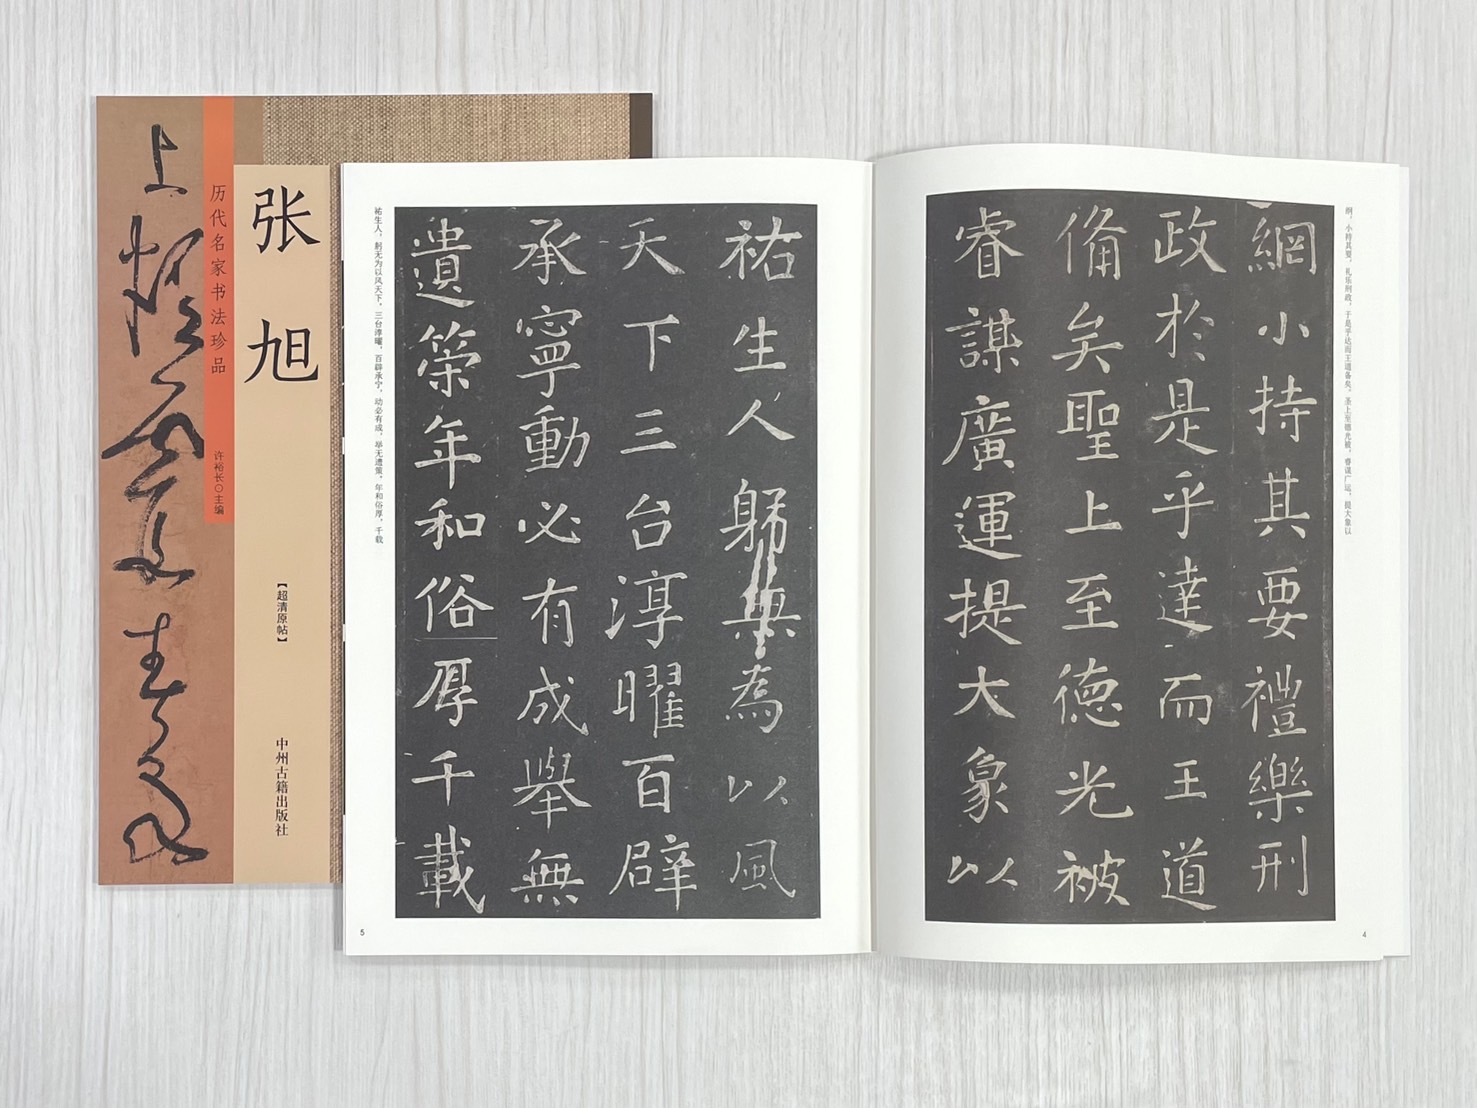 张旭
历代名家书法珍品
许裕长⊙主编
【超清原帖】
中州古籍出版社
纲，小持其要，礼乐刑政，于是乎达而王道备矣。圣上至德光被，睿谋广运，提大象以
網小持其要禮樂刑
政於是乎達而王道
備矣聖上至德光被
睿謀廣運提大象以
4
祐生人躬無為以風
天下三台淳曜百辟
承寧動必有成舉無
遺策年和俗厚千載
祐生人，躬无为以风天下，三台淳曜，百辟承宁，动必有成，举无遗策，年和俗厚，千载
5